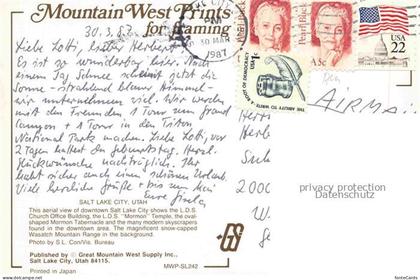 Mountain West Prints
for framing
30.3.87
Liebe Lotti, lieber Herbert!
Es ist so wunderbar hier. Nach
einem Tag Schnee scheint jetzt die
Sonne - strahlend blauer Himmel -
wir unternehmen viel. Wir werden
mit den Freunden 1 Tour zum Grand
Canyon + 1 Tour in den
National Park machen. Liebe Lotti, vor
2 Tagen hattest Du Geburtstag. Herzl.
Glückwünsche nachträglich. Ihr
habt sicher auch einen schönen Urlaub.
Viele herzliche Grüße + bis zum
Eure Gisela,
SALT LAKE CITY, UTAH
This aerial view of downtown Salt Lake City shows the L.D.S.
Church Office Building, the L.D.S. "Mormon" Temple, the oval-
shaped Mormon Tabernacle and the many modern skyscrapers
found in the downtown area. The magnificent snow-capped
Wasatch Mountain Range in the background.
Photo by S.L. Con/Vis. Bureau
Published by © Great Mountain West Supply Inc.,
Salt Lake City, Utah 84115.
Printed in Japan
MWP-SL242
30 MAR
1987
Pearl Buck
Pearl Buck
USA 5c
USA
22
USA 1c
ROOT OF DEMOCRACY
AIRMAIL
Her
Suh
2000
W.
privacy protection
Datenschutz